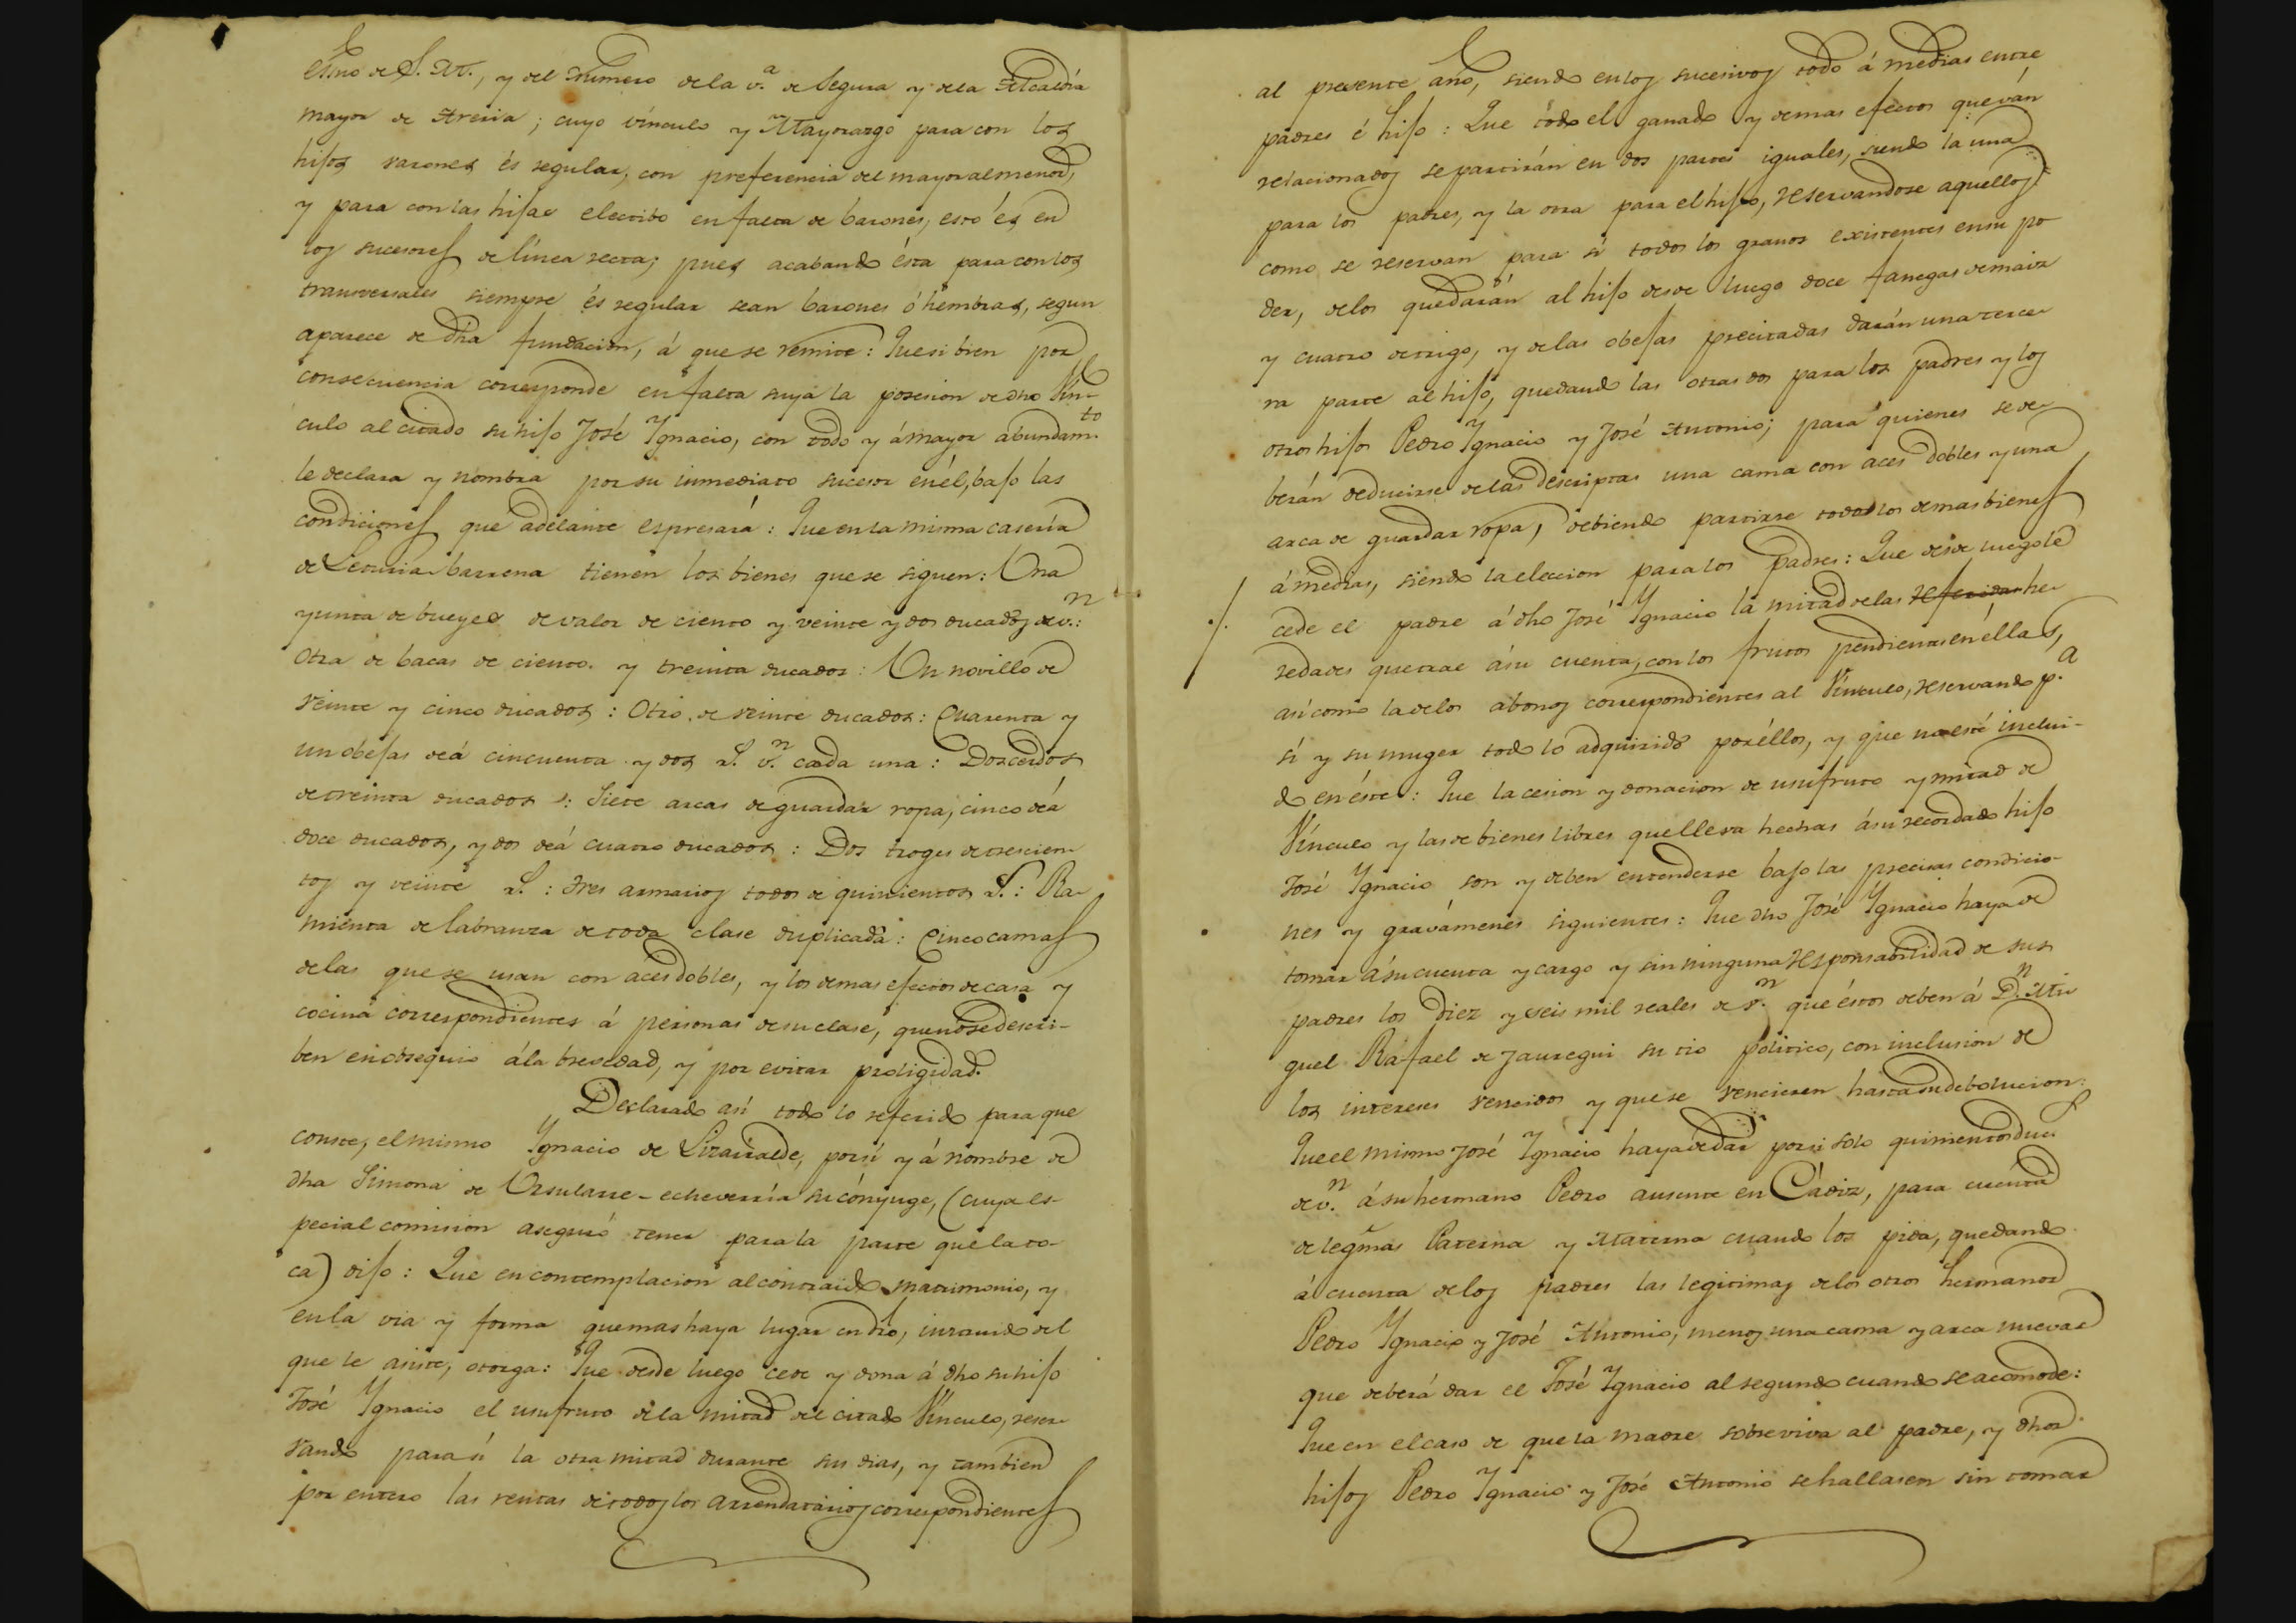 Esno de S. M., y del Numero de la v.ª de Segura y de la Alcaldía
mayor de Areria; cuyo vínculo y Mayorazgo para con los
hijos varones és regular, con preferencia del mayor al menor,
y para con las hijas electibo en falta de barones, esto és en
los sucesores de línea recta; pues acabando ésta para con los
transversales siempre és regular sean barones ó hembras, segun
aparece de dha fundacion, á que se remite: Que si bien por
consecuencia corresponde en falta suya la posesion de dho Vín-
culo al citado su hijo José Ygnacio, con todo y á mayor abundam.to
le declara y nombra por su inmediato sucesor en él, bajo las
condiciones que adelante espresará: Que en la misma casería
de Lecuria-barrena tienen los bienes que se siguen: Una
yunta de bueyes de valor de ciento y veinte y dos ducados de v.n:
Otra de bacas de ciento y treinta ducados: Un novillo de
veinte y cinco ducados: Otro de veinte ducados: Cuarenta y
un obejas de á cincuenta y dos r.s v.n cada una: Dos cerdos
de treinta ducados: Siete arcas de guardar ropa, cinco de á
doce ducados, y dos de á cuatro ducados: Dos troges de trescien-
tos y veinte r.s: Tres armarios todos de quinientos r.s: Ra-
mienta de labranza de toda clase duplicada: Cinco camas
de las que se usan con aces dobles, y los demas efectos de casa y
cocina correspondientes á personas de su clase, que no se descri-
ben en obsequio á la brevedad, y por evitar proligidad.
Declarado asi todo lo referido para que
conste, el mismo Ygnacio de Lizarralde, por sí y á nombre de
dha Simona de Ursularre-echeverría su cónyuge, (cuya es-
pecial comision aseguró tener para la parte que la to-
ca) dijo: Que en contemplacion al contraido matrimonio, y
en la via y forma que mas haya lugar en dro, instruido del
que le asiste, otorga: Que desde luego cede y dona á dho su hijo
José Ygnacio el usufruto de la mitad del citado Vínculo, reser-
vando para sí la otra mitad durante sus dias, y tambien
por entero las rentas de todos los arrendatarios correspondientes
al presente año, siendo en los sucesivos todo á medias entre
padres é hijo: Que todo el ganado y demas efectos que van
relacionados se partirán en dos partes iguales, siendo la una
para los padres, y la otra para el hijo, reservandose aquellos
como se reservan para sí todos los granos existentes en su po-
der, de los quedarán al hijo desde luego doce fanegas de maiz
y cuatro de trigo, y de las obejas precitadas darán una terce-
ra parte al hijo, quedando las otras dos para los padres y los
otros hijos Pedro Ygnacio y José Antonio; para quienes se de-
berán deducirse de las descriptas una cama con aces dobles y una
arca de guardar ropa, debiendo partirse todos los demas bienes
á medias, siendo la eleccion para los padres: Que desde luego le
cede el padre á dho José Ygnacio la mitad de las referidas he-
redades que trae á su cuenta, con los frutos pendientes en éllas,
asi como la de los abonos correspondientes al Vínculo, reservando p.a
sí y su muger todo lo adquirido por éllos, y que no esté inclui-
do en éste: Que la cesion y donacion de usufruto y mitad de
Vínculo y las de bienes libres que lleva hechas á su recordado hijo
José Ygnacio son y deben entenderse bajo las precisas condicio-
nes y gravámenes siguientes: Que dho José Ygnacio haya de
tomar á su cuenta y cargo y sin ninguna responsabilidad de sus
padres los diez y seis mil reales de v.n que éstos deben á D.n Mi-
guel Rafael de Jauregui su tio politico, con inclusion de
los intereses vencidos y que se vencieren hasta su debolucion:
Que el mismo José Ygnacio haya de dar por si solo quinientos duc.s
de v.n á su hermano Pedro ausente en Cádiz, para cuenta
de legmas Paterna y Materna cuando los pida, quedando
á cuenta de los padres las legitimas de los otros hermanos
Pedro Ygnacio y José Antonio, menos una cama y arca nuevas
que deberá dar el José Ygnacio al segundo cuando se acomode:
Que en el caso de que la madre sobreviva al padre, y dhos
hijos Pedro Ygnacio y José Antonio se hallasen sin tomar